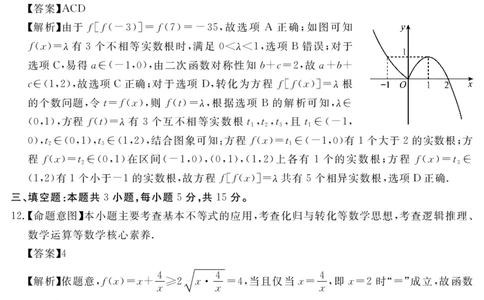 【答案】ACD
【解析】由于 f[f(-3)]=f(7)=-35,故选项 A 正确;如图可知
f(x)=λ 有 3 个不相等实数根时,满足 0<λ<1,选项 B 错误;对于
选项 C,易得 a∈(-1,0),由二次函数对称性知 b+c=2,故 a+b+
c∈(1,2),故选项 C 正确;对于选项 D,转化为方程 f[f(x)]=λ 根
的个数问题,令 t=f(x),则 f(t)=λ,根据选项 B 的解析可知,λ∈
(0,1),方程 f(t)=λ 有 3 个互不相等实数根 t₁,t₂,t₃,且 t₁∈(-1,
0),t₂∈(0,1),t₃∈(1,2),结合图象可知:方程 f(x)=t₁∈(-1,0)有 1 个大于 2 的实数根;方
程 f(x)=t₂∈(0,1)在区间(-1,0),(0,1),(1,2)上各有 1 个的实数根;方程 f(x)=t₃∈
(1,2)有 1 个小于-1 的实数根,故方程 f[f(x)]=λ 共有 5 个相异实数根,选项 D 正确.
y
1
-1 O 1 2 x
三、填空题:本题共 3 小题,每小题 5 分,共 15 分。
12.【命题意图】本小题主要考查基本不等式的应用,考查化归与转化等数学思想,考查逻辑推理、
数学运算等数学核心素养.
【答案】4
【解析】依题意,f(x)=x+4/x≥2√(x·4/x)=4,当且仅当 x=4/x,即 x=2 时“=”成立,故函数